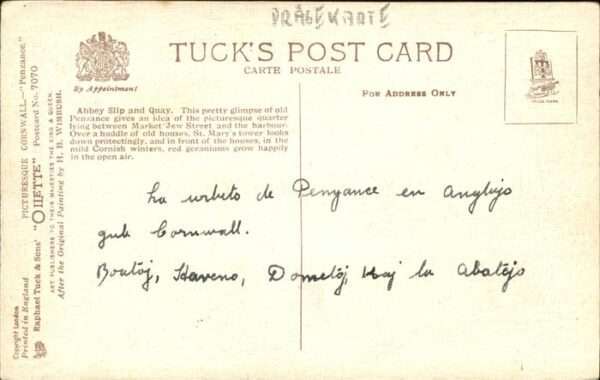 PRÅGEKARTE
TUCK'S POST CARD
CARTE POSTALE
By Appointment
FOR ADDRESS ONLY
Abbey Slip and Quay. This pretty glimpse of old
Penzance gives an idea of the picturesque quarter
lying between Market Jew Street and the harbour.
Over a huddle of old houses, St. Mary's tower looks
down protectingly, and in front of the houses, in the
mild Cornish winters, red geraniums grow happily
in the open air.
La urbeto de Penzance en Anglujo
gub Cornwall.
Boatoj, Haveno, Dometoj, kaj la Abatejo
PICTURESQUE CORNWALL—"Penzance."
Raphael Tuck & Sons' "OILETTE" Postcard No. 7070
ART PUBLISHERS TO THEIR MAJESTIES THE KING & QUEEN.
After the Original Painting by H. B. WIMBUSH.
Copyright London
Printed in England